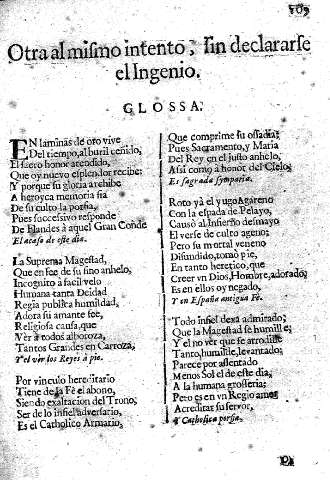 109
Otra al mismo intento, sin declararse
el Ingenio.
GLOSSA.
EN laminas de oro vive
Del tiempo, al buril ceñido,
El sacro honor atendido,
Que oy nuevo esplendor recibe:
Y porque su gloria archibe
A heroyca memoria fia
De su culto la porfia,
Pues successivo responde
De Flandes à aquel Gran Conde
El acaso de este dia.
La Suprema Magestad,
Que en fee de su fino anhelo,
Incognito à facil velo
Humana tanta Deidad
Regia publica humildad,
Adora su amante fee,
Religiosa causa, que
Vèr à todos alboroza,
Tantos Grandes en Carroza,
Y el vèr los Reyes à pie.
Por vinculo hereditario
Tiene de la Fè el abono,
Siendo exaltacion del Trono,
Ser de lo infiel adversario,
Es el Catholico Armario,
Que comprime su ossadia;
Pues Sacramento, y Maria
Del Rey en el justo anhelo,
Assi como à honor del Cielo,
Es sagrada sympatia.
Roto yà el yugo Agareno
Con la espada de Pelayo,
Causò al Infierno desmayo
El verse de culto ageno:
Pero su mortal veneno
Difundido, tomò pie,
En tanto heretico, que
Creer vn Dios, Hombre, adorado,
Es en ellos oy negado,
Y en España antigua Fè.
Todo infiel dexa admirado;
Que la Magestad se humille;
Y el no ver que se arrodille
Tanto, humilde, levantado;
Parece por assentado
Menos Sol el de este dia;
A la humana grosseria;
Pero es en vn Regio amor
Acreditar su fervor,
Catholica porfia.